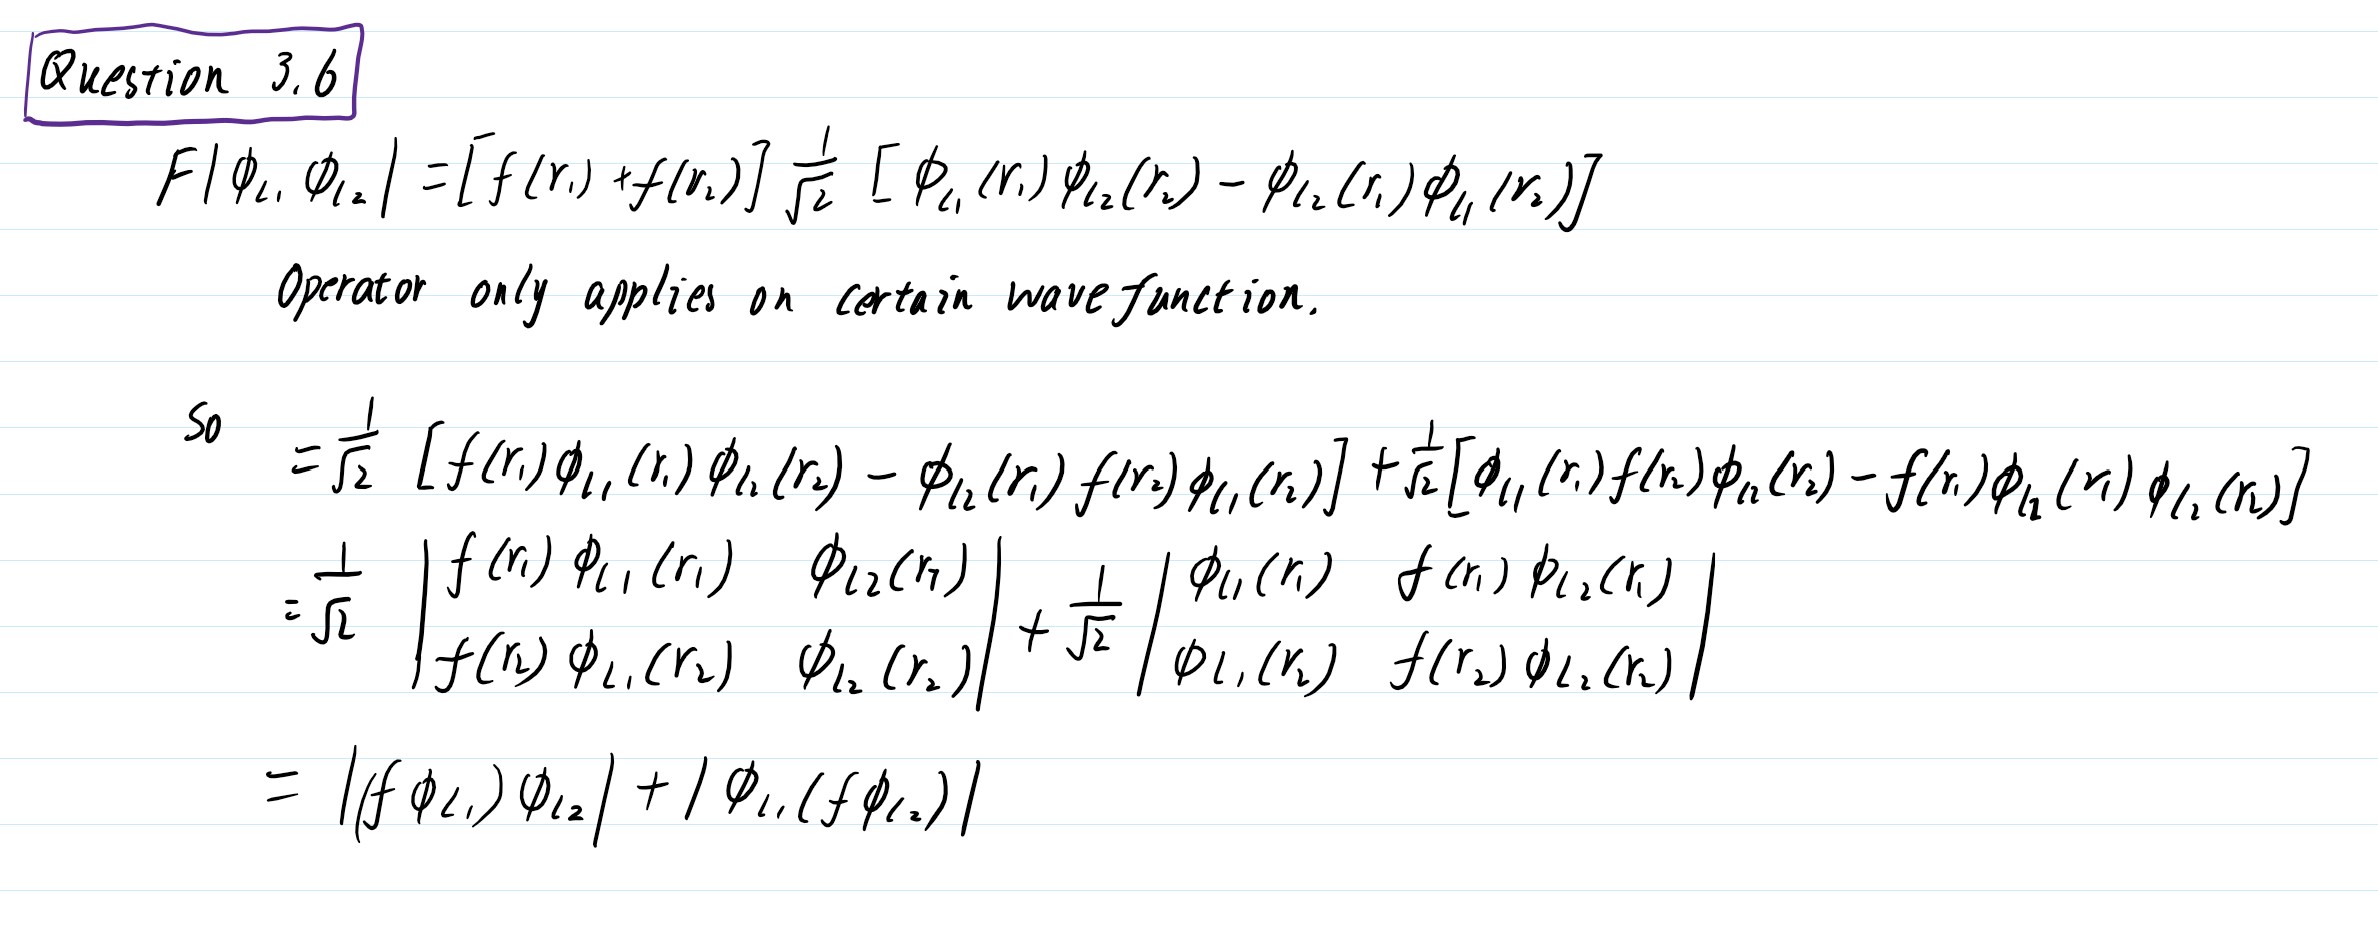 Question 3.6
F|ϕ_{l1} ϕ_{l2}| = [f(r₁) + f(r₂)] 1/√2 [ϕ_{l1}(r₁) ϕ_{l2}(r₂) − ϕ_{l2}(r₁) ϕ_{l1}(r₂)]
Operator only applies on certain wavefunction.
So = 1/√2 [f(r₁) ϕ_{l1}(r₁) ϕ_{l2}(r₂) − ϕ_{l2}(r₁) f(r₂) ϕ_{l1}(r₂)] + 1/√2 [ϕ_{l1}(r₁) f(r₂) ϕ_{l2}(r₂) − f(r₁) ϕ_{l2}(r₁) ϕ_{l2}(r₂)]
= 1/√2 | f(r₁) ϕ_{l1}(r₁) ϕ_{l2}(r₁) | + 1/√2 | ϕ_{l1}(r₁) f(r₁) ϕ_{l2}(r₁) |
| f(r₂) ϕ_{l1}(r₂) ϕ_{l2}(r₂) | | ϕ_{l1}(r₂) f(r₂) ϕ_{l2}(r₂) |
= |(f ϕ_{l1}) ϕ_{l2}| + |ϕ_{l1} (f ϕ_{l2})|